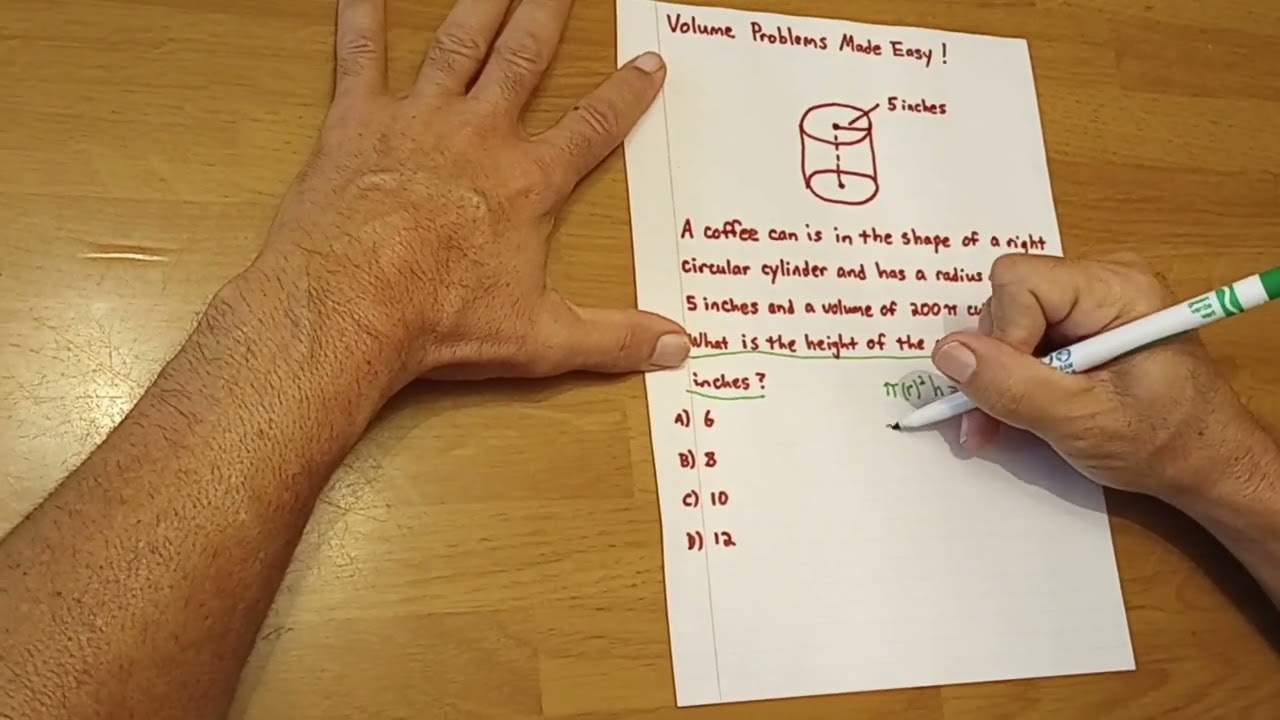 Volume Problems Made Easy!
5 inches
A coffee can is in the shape of a right
circular cylinder and has a radius
5 inches and a volume of 200π
What is the height of the
inches?
π(r)²h=
A) 6
B) 8
C) 10
D) 12
green
verde
vert